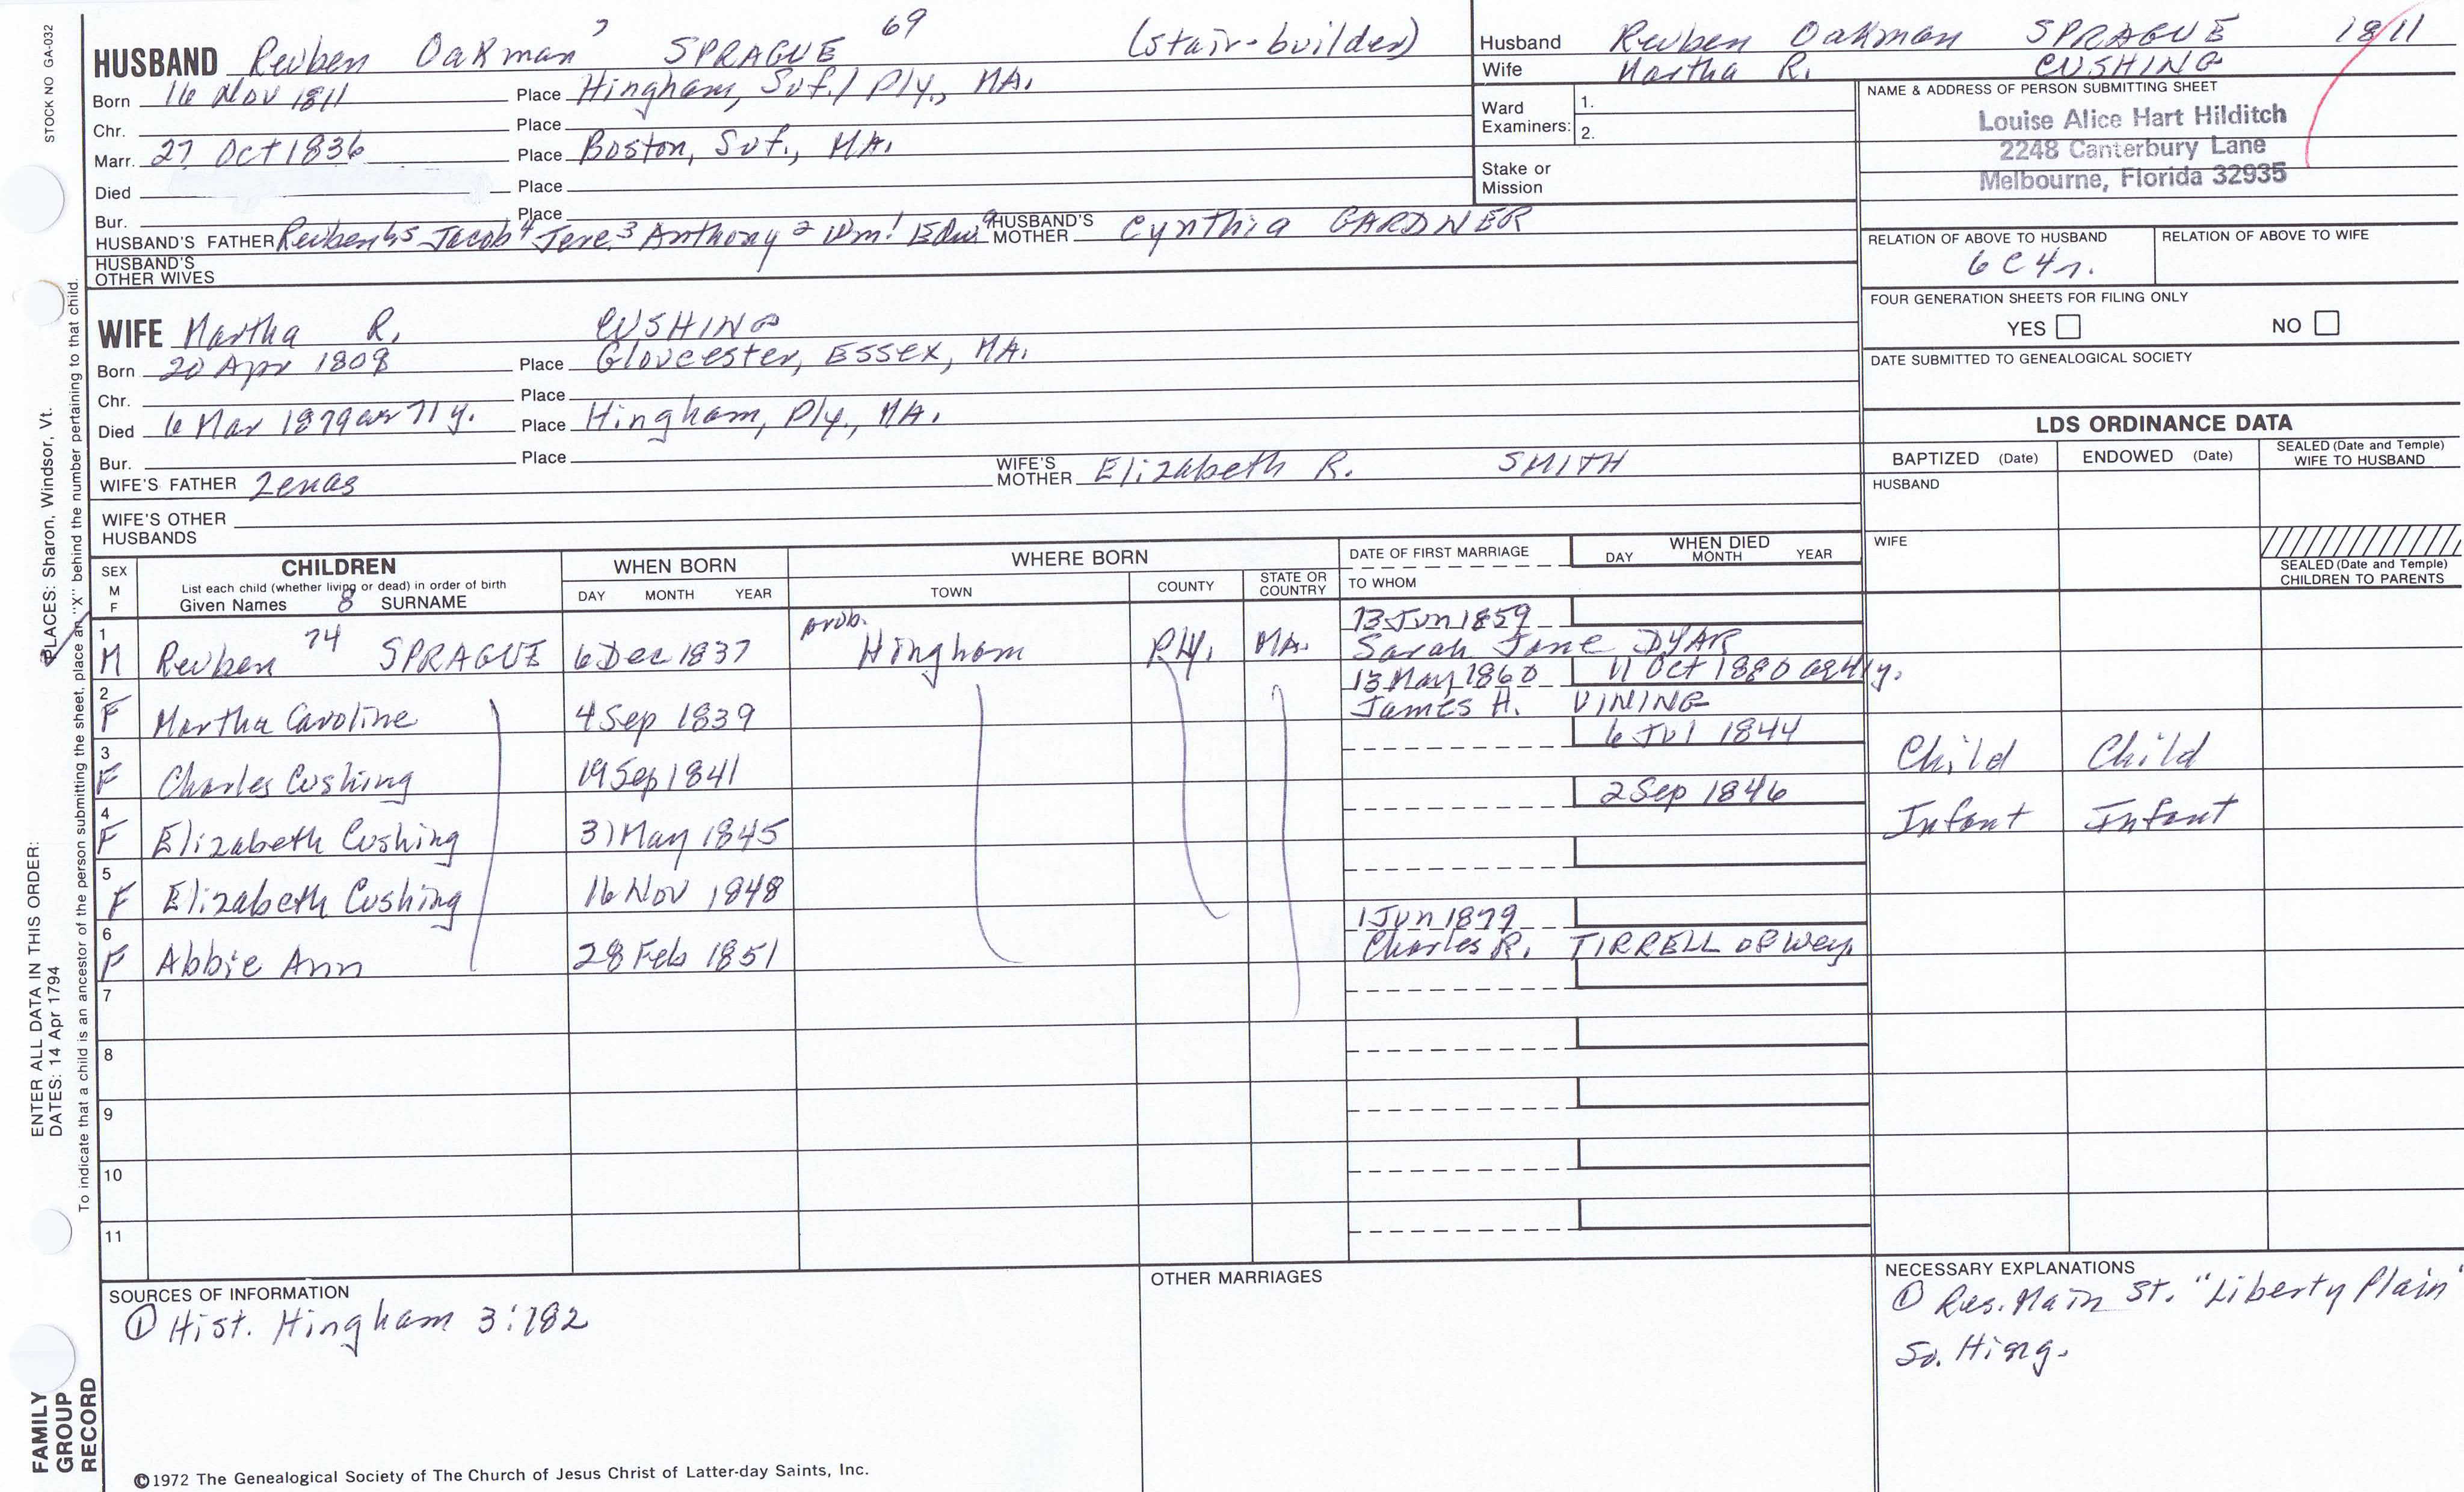 STOCK NO GA-032
HUSBAND Reuben Oakman 7 SPRAGUE 69 (stair-builder)
Born 16 Nov 1811 Place Hingham, Suf./ Ply., MA.
Chr. Place
Marr. 27 Oct 1836 Place Boston, Suf., MA.
Died Place
Bur. Place
HUSBAND'S FATHER Reuben 6,5 Jacob 4 Jere. 3 Anthony 2 Wm. 1 Edw. a HUSBAND'S MOTHER Cynthia GARDNER
HUSBAND'S OTHER WIVES
WIFE Martha R. CUSHING
Born 20 Apr 1808 Place Gloucester, Essex, MA.
Chr. Place
Died 6 Mar 1879 ae 71 y. Place Hingham, Ply., MA.
Bur. Place
WIFE'S FATHER Zenas WIFE'S MOTHER Elizabeth R. SMITH
WIFE'S OTHER HUSBANDS
Husband Reuben Oakman SPRAGUE 1811
Wife Martha R. CUSHING
Ward Examiners: 1.
2.
Stake or Mission
NAME & ADDRESS OF PERSON SUBMITTING SHEET
Louise Alice Hart Hilditch
2248 Canterbury Lane
Melbourne, Florida 32935
RELATION OF ABOVE TO HUSBAND RELATION OF ABOVE TO WIFE
6 C 4 r.
FOUR GENERATION SHEETS FOR FILING ONLY
YES NO
DATE SUBMITTED TO GENEALOGICAL SOCIETY
LDS ORDINANCE DATA
BAPTIZED (Date) ENDOWED (Date) SEALED (Date and Temple) WIFE TO HUSBAND
HUSBAND
WIFE
SEALED (Date and Temple) CHILDREN TO PARENTS
SEX M F CHILDREN WHEN BORN WHERE BORN DATE OF FIRST MARRIAGE WHEN DIED
List each child (whether living or dead) in order of birth
Given Names 8 SURNAME DAY MONTH YEAR TOWN COUNTY STATE OR COUNTRY TO WHOM DAY MONTH YEAR
1 M Reuben 74 SPRAGUE 6 Dec 1837 prob. Hingham Ply. MA. 13 Jun 1859 Sarah Jane DYAR
2 F Martha Caroline 4 Sep 1839 13 May 1860 James H. VINING 11 Oct 1880 ae 41 y.
3 F Charles Cushing 19 Sep 1841 6 Jul 1844 Child Child
4 F Elizabeth Cushing 31 May 1845 2 Sep 1846 Infant Infant
5 F Elizabeth Cushing 16 Nov 1848
6 F Abbie Ann 28 Feb 1851 1 Jun 1879 Charles R. TIRRELL of Wey.
7
8
9
10
11
SOURCES OF INFORMATION
① Hist. Hingham 3:182
OTHER MARRIAGES
NECESSARY EXPLANATIONS
① Res. Main St. "Liberty Plain"
So. Hing.
©1972 The Genealogical Society of The Church of Jesus Christ of Latter-day Saints, Inc.
FAMILY GROUP RECORD
ENTER ALL DATA IN THIS ORDER:
DATES: 14 Apr 1794
PLACES: Sharon, Windsor, Vt.
To indicate that a child is an ancestor of the person submitting the sheet, place an "X" behind the number pertaining to that child.